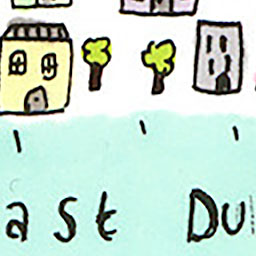 ast Du